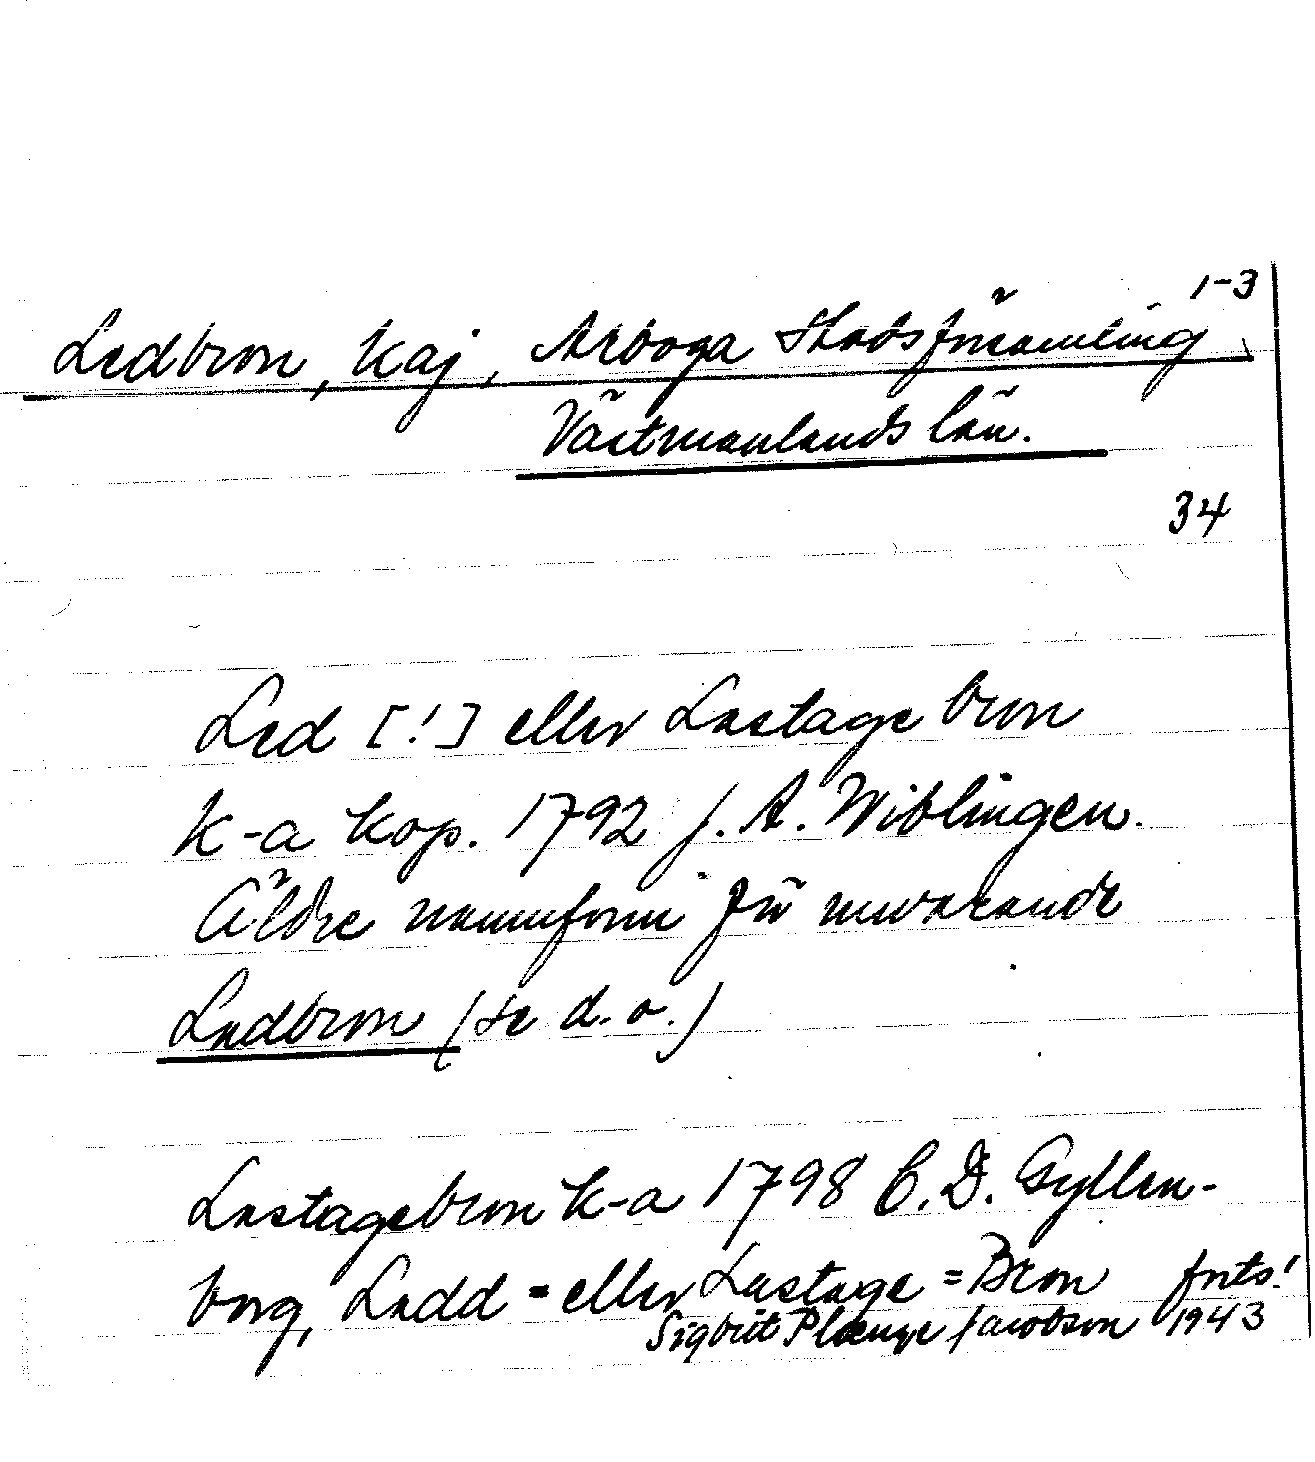 1-3
Ledbron, kaj, Arboga Stadsförsamling
Västmanlands län.
34
Led [!] eller Lastage bron
k-a kop. 1792 J. A. Wiblingen.
Äldre namnform för nuvarande
Ladbron (se d.o.)
Lastagebron k-a 1798 C. D. Gyllen-
borg, Ladd = eller Lastage = Bron forts!
Sigbrit Plænge Jacobson 1943